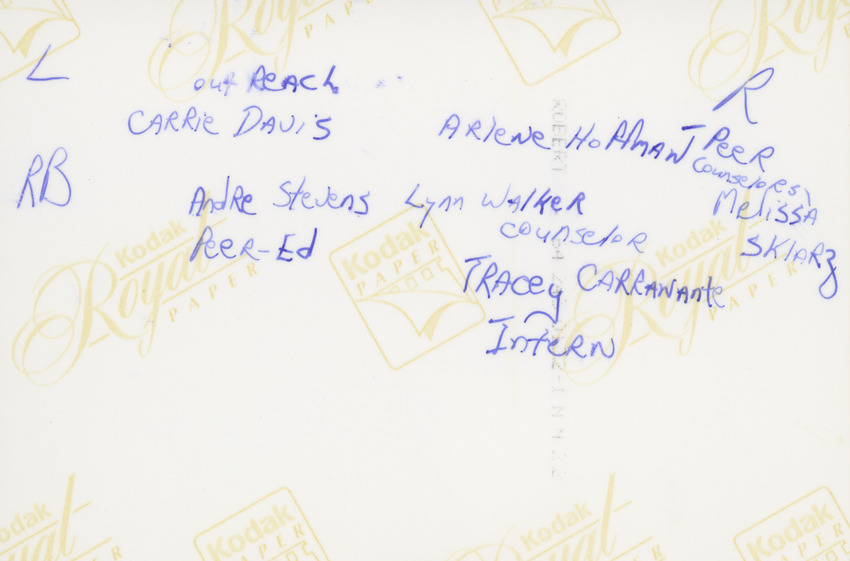 L
R
out Reach
CARRie DAvis
ARleNe HoffmaN
PeeR
Counselors
RB
AndRe Stevens
Lynn WalkeR
Melissa
SklaRz
PeeR-Ed
counseloR
TRAcey CARRAwante
InteRN
Kodak
Royal
PAPER